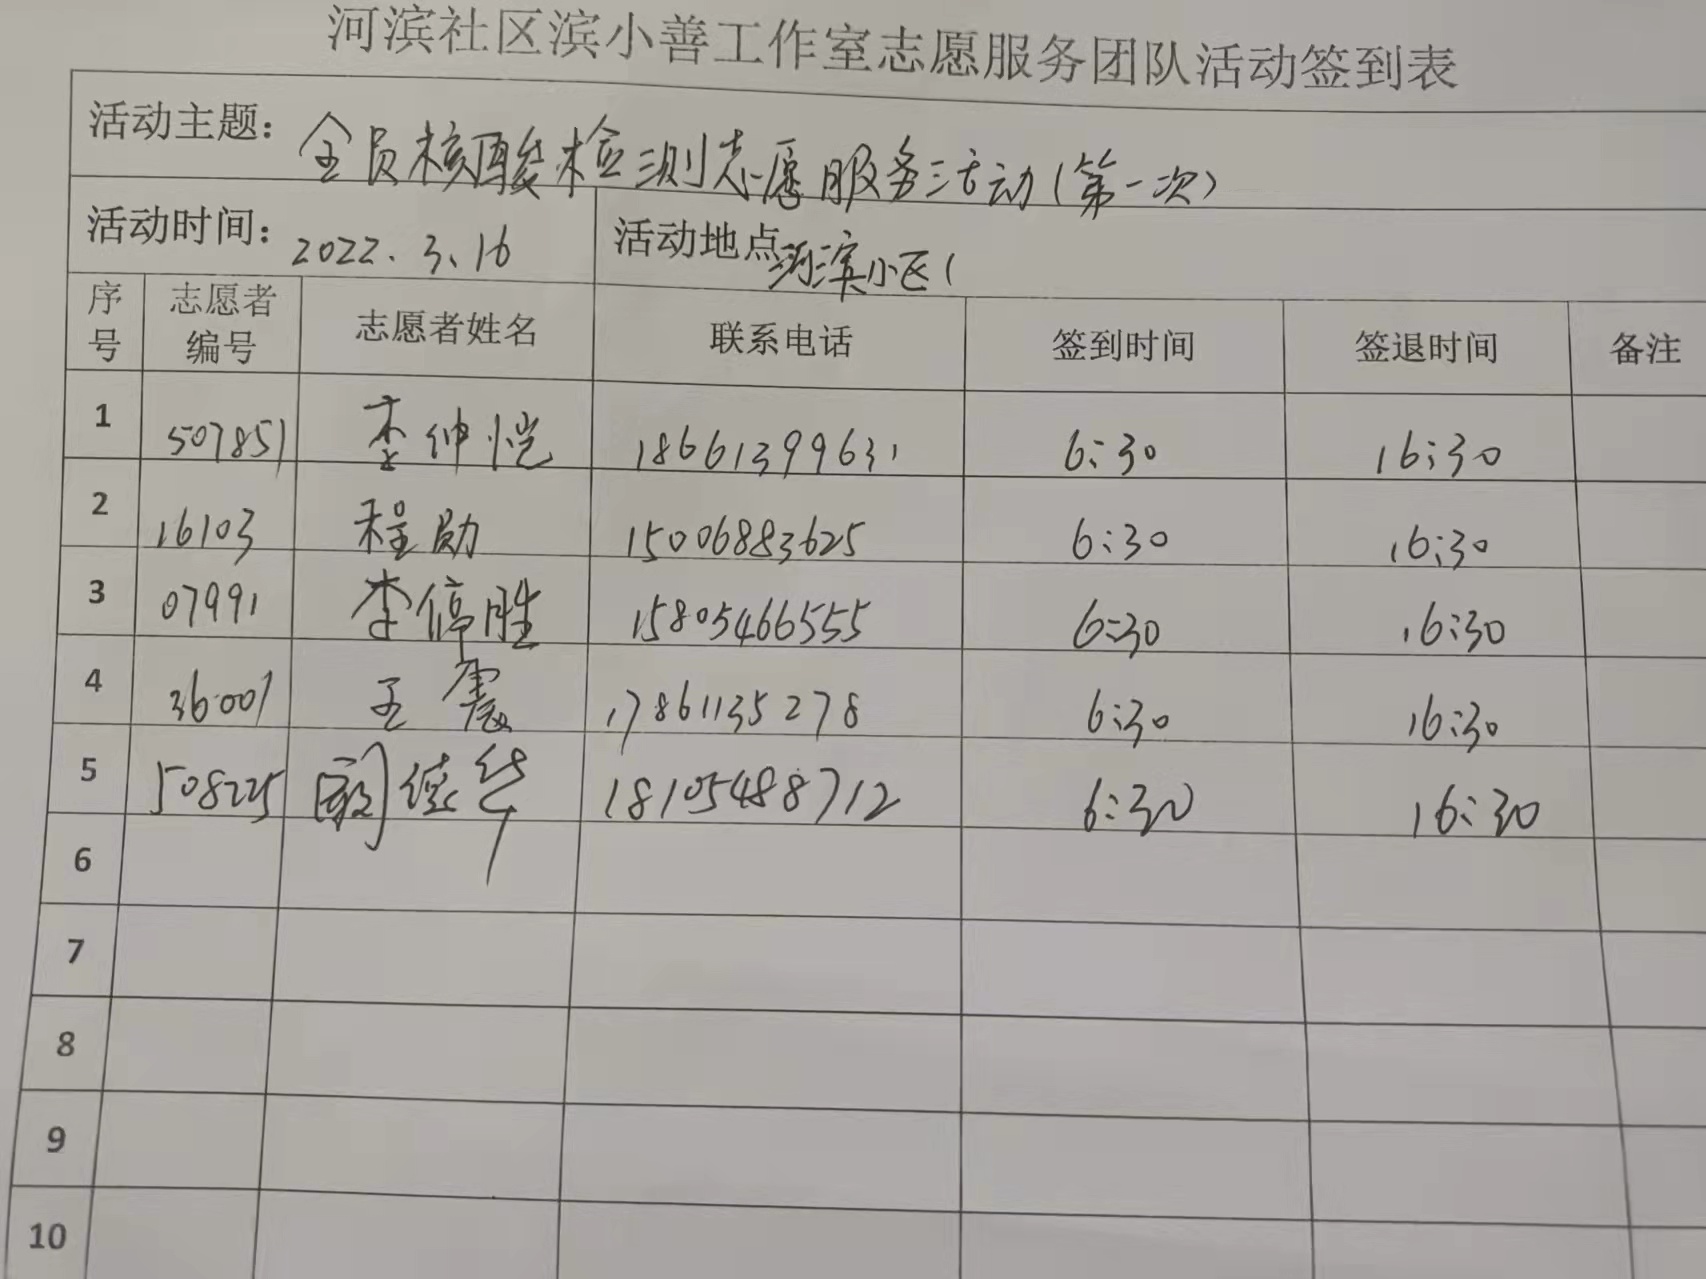 河滨社区滨小善工作室志愿服务团队活动签到表
活动主题: 全员核酸检测志愿服务活动(第一次)
活动时间: 2022.3.16 活动地点 河滨小区(
序号 志愿者编号 志愿者姓名 联系电话 签到时间 签退时间 备注
1 507851 李仲恺 18661399631 6:30 16:30
2 16103 程勋 15006883625 6:30 16:30
3 07991 李停胜 15805466555 6:30 16:30
4 36001 王震 17861135278 6:30 16:30
5 508225 18105488712 6:30 16:30
6
7
8
9
10